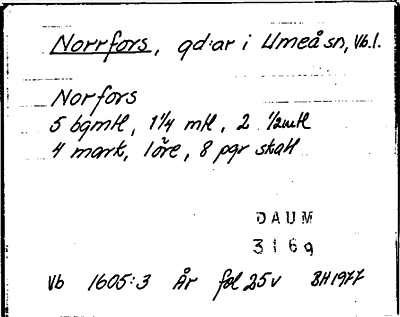 Norrfors, gd:ar i Umeå sn, Vb.l.
Norfors
5 bgmtl, 1 1/4 mtl, 2 1/2mtl
4 mark, 1 öre, 8 pgr skatt
DAUM
3169
Vb 1605:3 År fol 25v BH1977